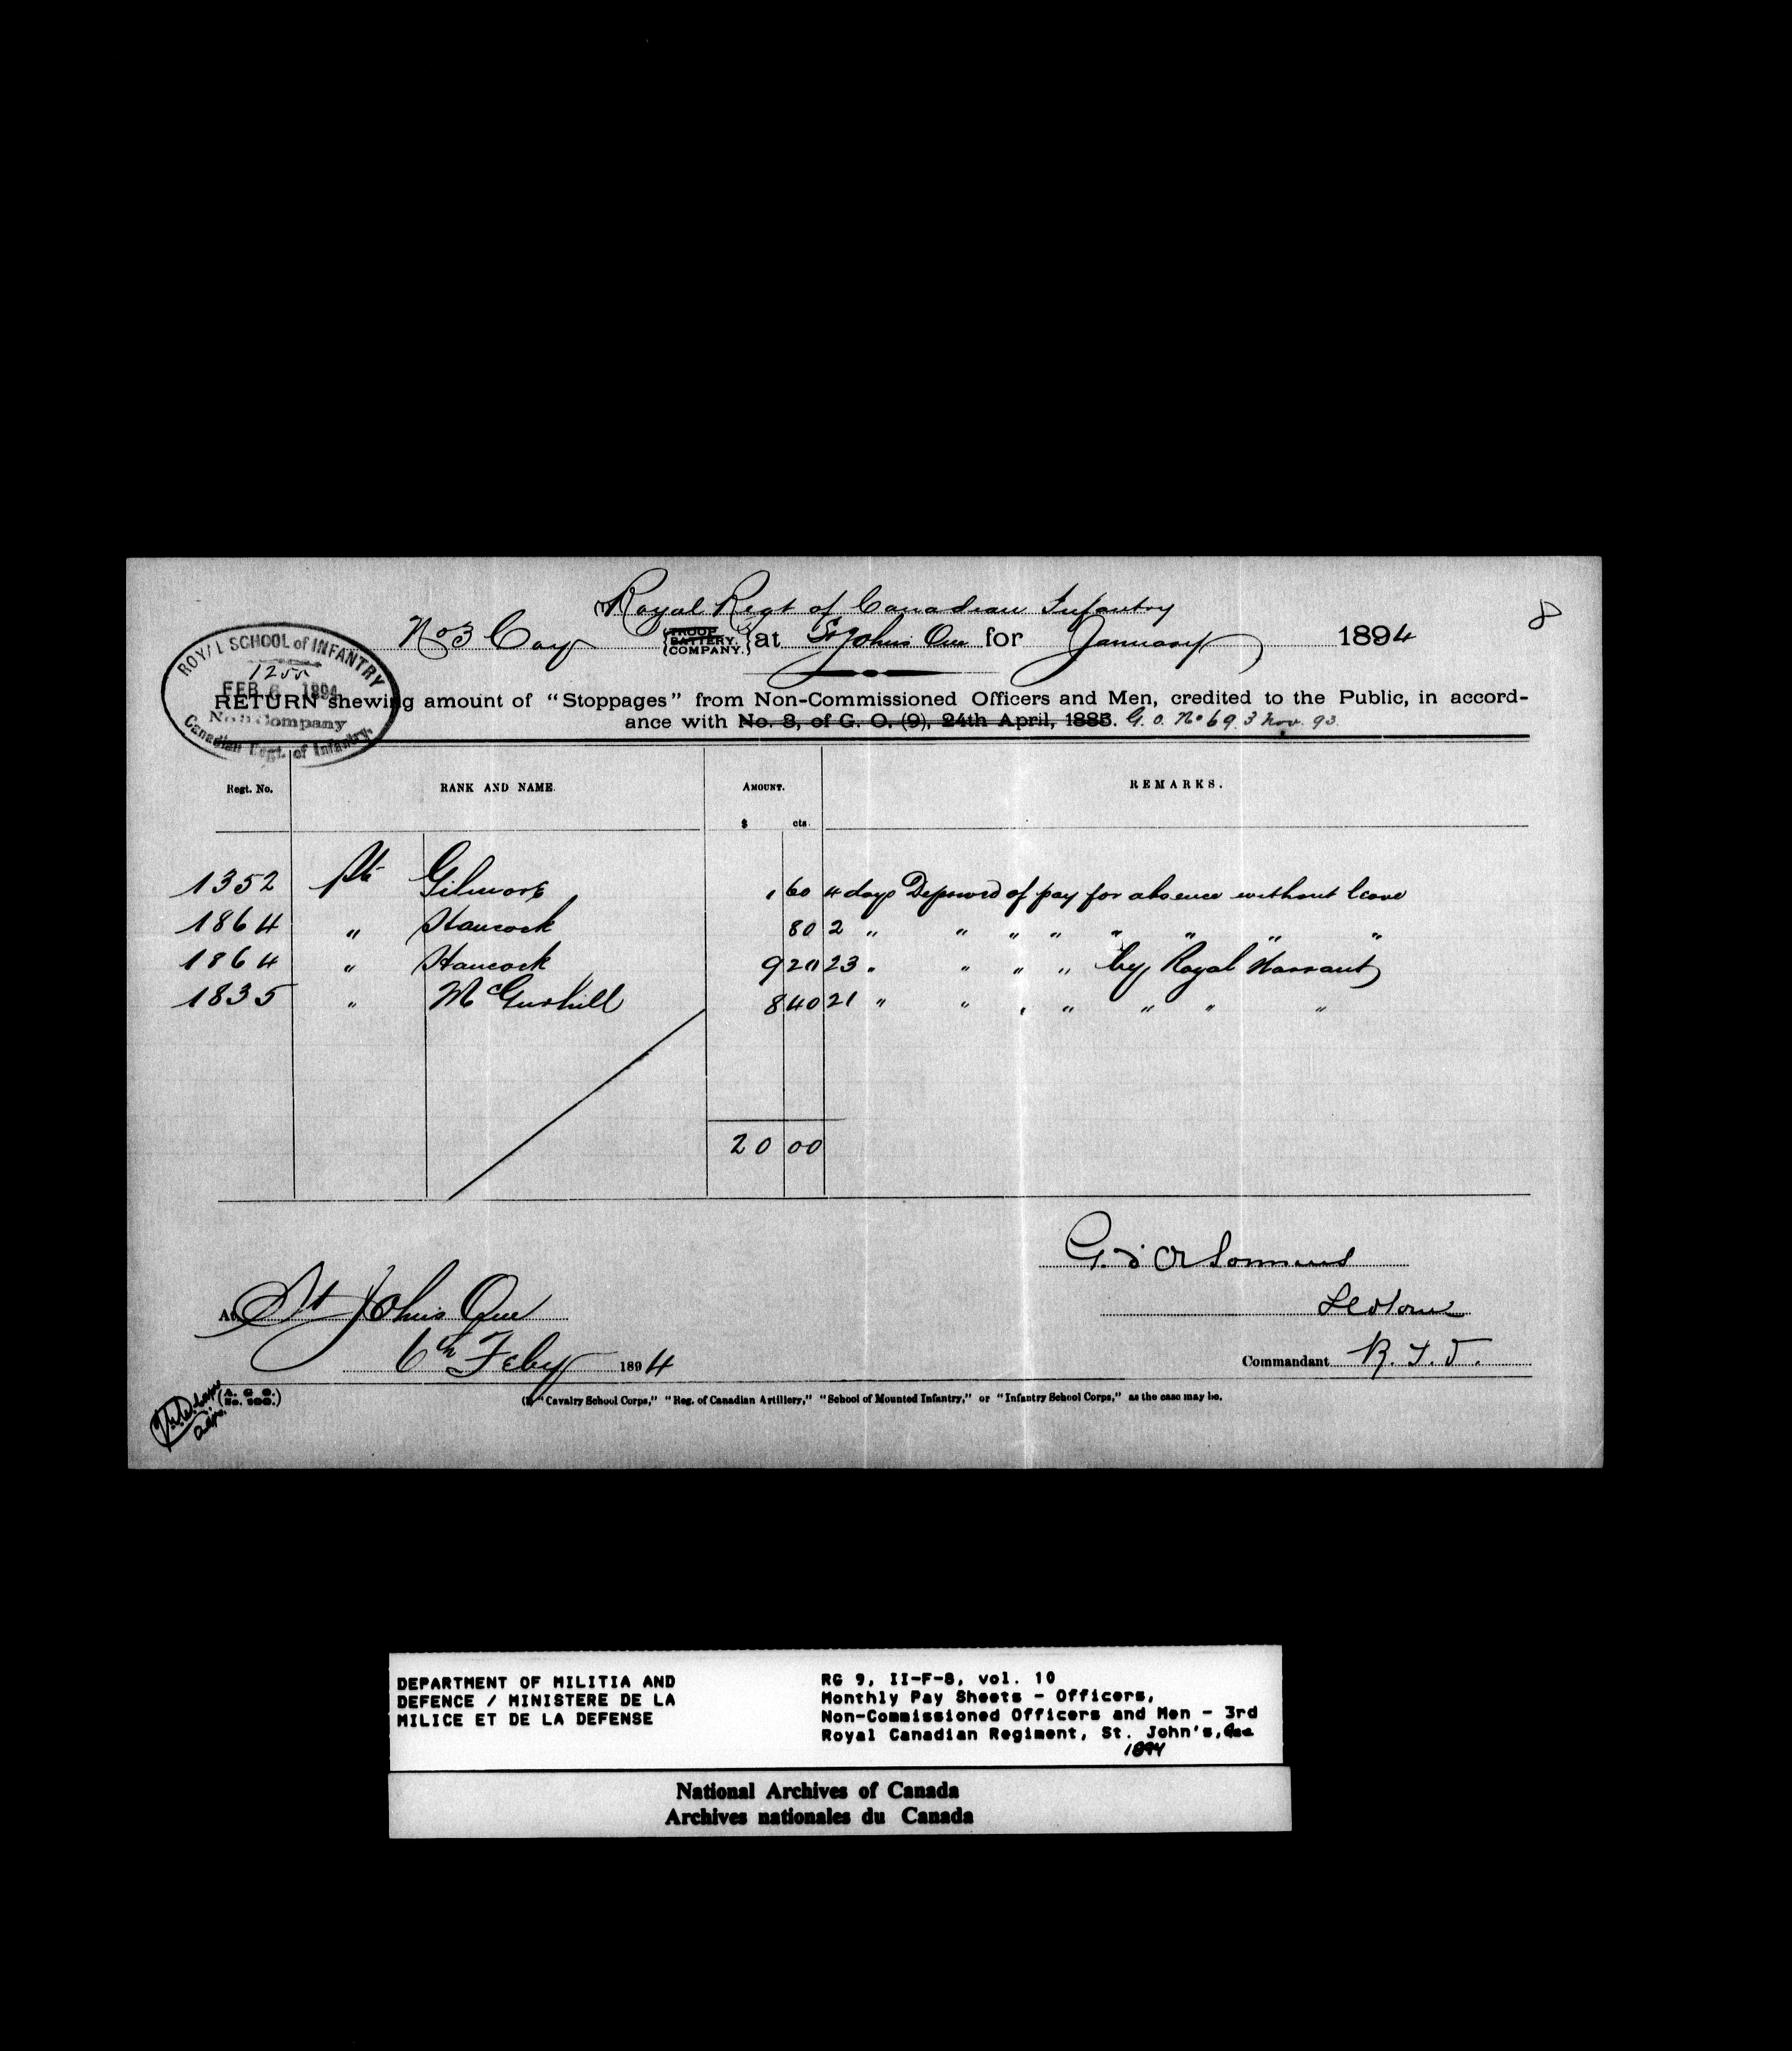 (1) Royal Regt of Canadian Infantry
8
No 3 Coy {TROOP BATTERY. COMPANY.} at St Johns Que for January 1894
ROYAL SCHOOL of INFANTRY
1255
FEB 6 1894
No. 3 Company
Canadian Regt. of Infantry.
RETURN shewing amount of “Stoppages” from Non-Commissioned Officers and Men, credited to the Public, in accord-
ance with No. 3, of G. O. (9), 24th April, 1885. G. O. No 69. 3 Nov. 93.
Regt. No. RANK AND NAME. AMOUNT. REMARKS.
$ cts.
1352 Pte Gilmore 1 60 4 days Deprived of pay for absence without leave
1864 " Hancock 80 2 " " " " " " " "
1864 " Hancock 9 20 23 " " " " by Royal Warrant
1835 " 8 40 21 " " " " " " "
20 00
G. d'O
At St Johns Que
Commandant
6th Feby 1894
(A. G. O.)
(1) “Cavalry School Corps,” “Reg. of Canadian Artillery,” “School of Mounted Infantry,” or “Infantry School Corps,” as the case may be.
DEPARTMENT OF MILITIA AND
DEFENCE / MINISTERE DE LA
MILICE ET DE LA DEFENSE
RG 9, II-F-8, vol. 10
Monthly Pay Sheets - Officers,
Non-Commissioned Officers and Men - 3rd
Royal Canadian Regiment, St. John's, Que
1894
National Archives of Canada
Archives nationales du Canada